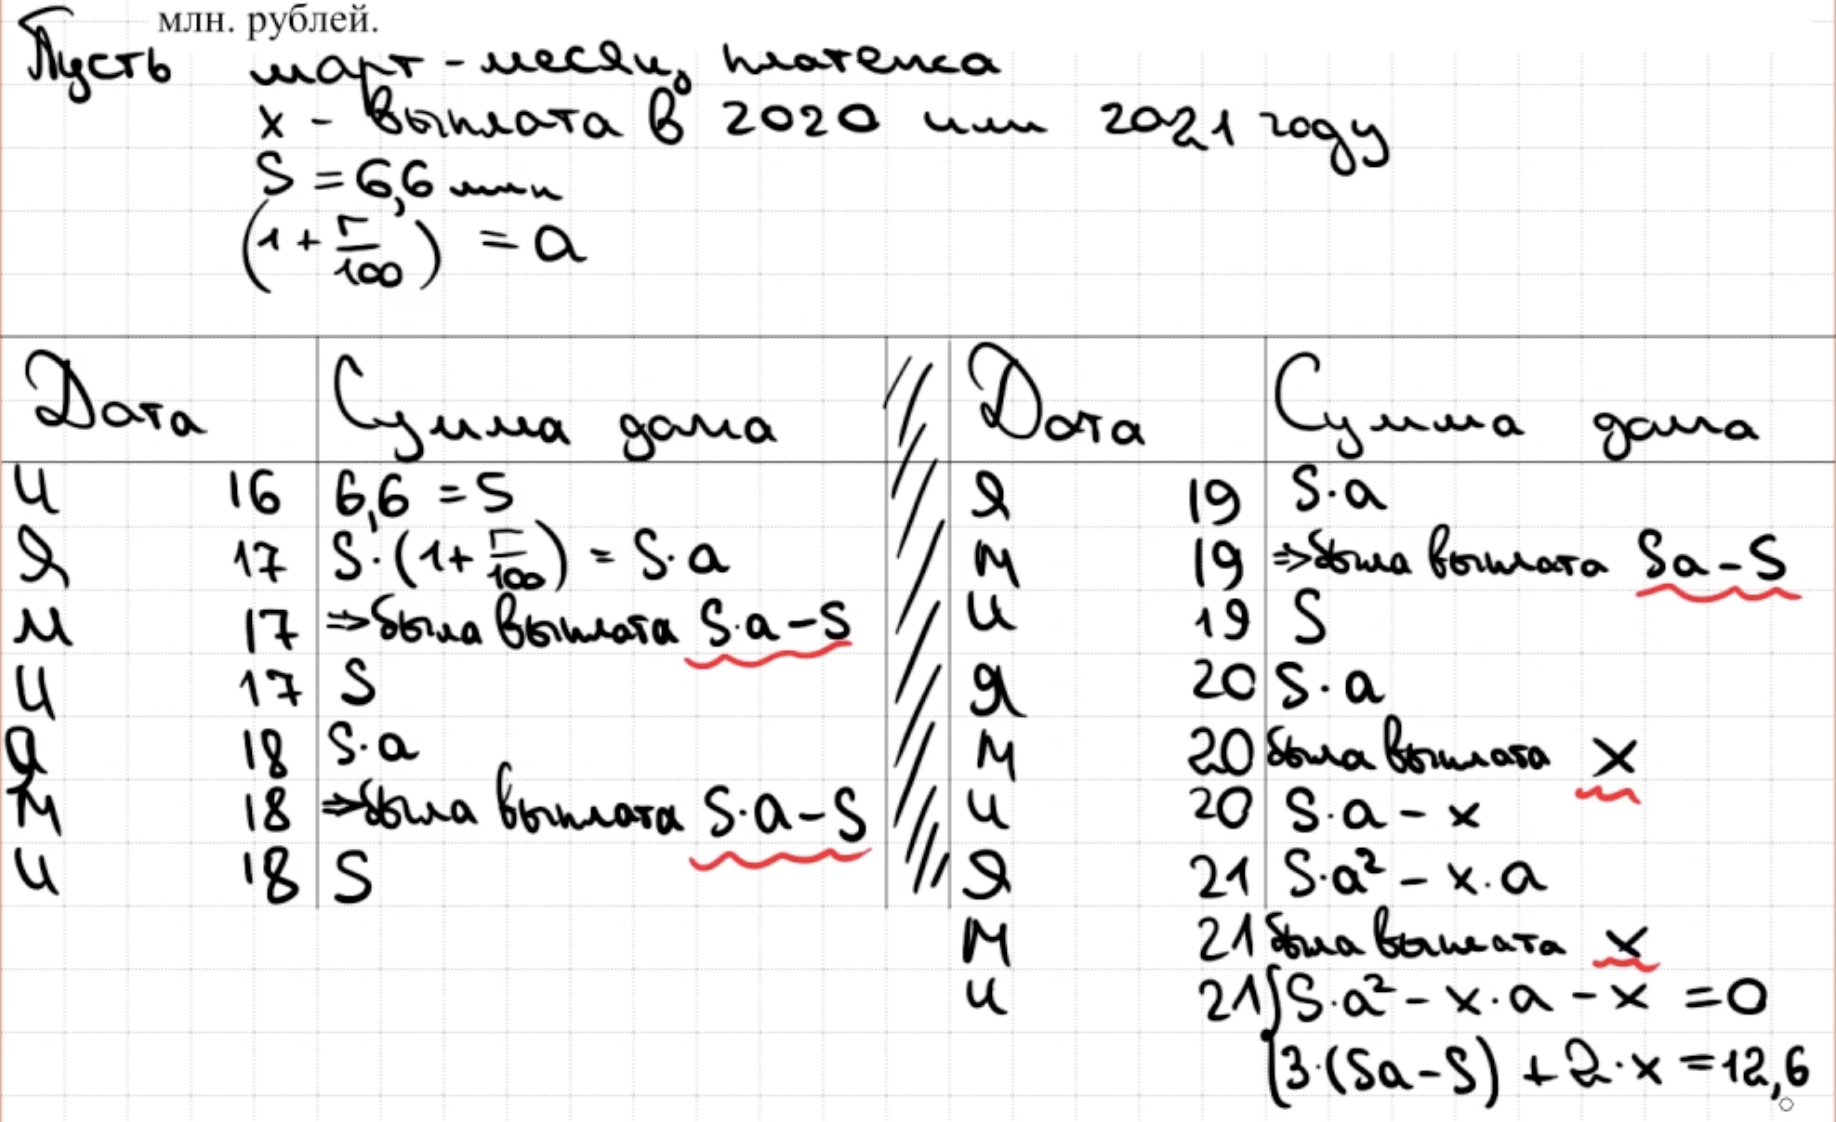 млн. рублей.
Пусть март - месяц платежа
x - выплата в 2020 или 2021 году
S = 6,6 млн
(1 + r/100) = a
Дата Сумма долга
И 16 6,6 = S
Я 17 S·(1 + r/100) = S·a
М 17 ⇒ была выплата S·a - S
И 17 S
Я 18 S·a
М 18 ⇒ была выплата S·a - S
И 18 S
Дата Сумма долга
Я 19 S·a
М 19 ⇒ была выплата Sa - S
И 19 S
Я 20 S·a
М 20 была выплата x
И 20 S·a - x
Я 21 S·a² - x·a
М 21 была выплата x
И 21 S·a² - x·a - x = 0
3·(Sa - S) + 2·x = 12,6